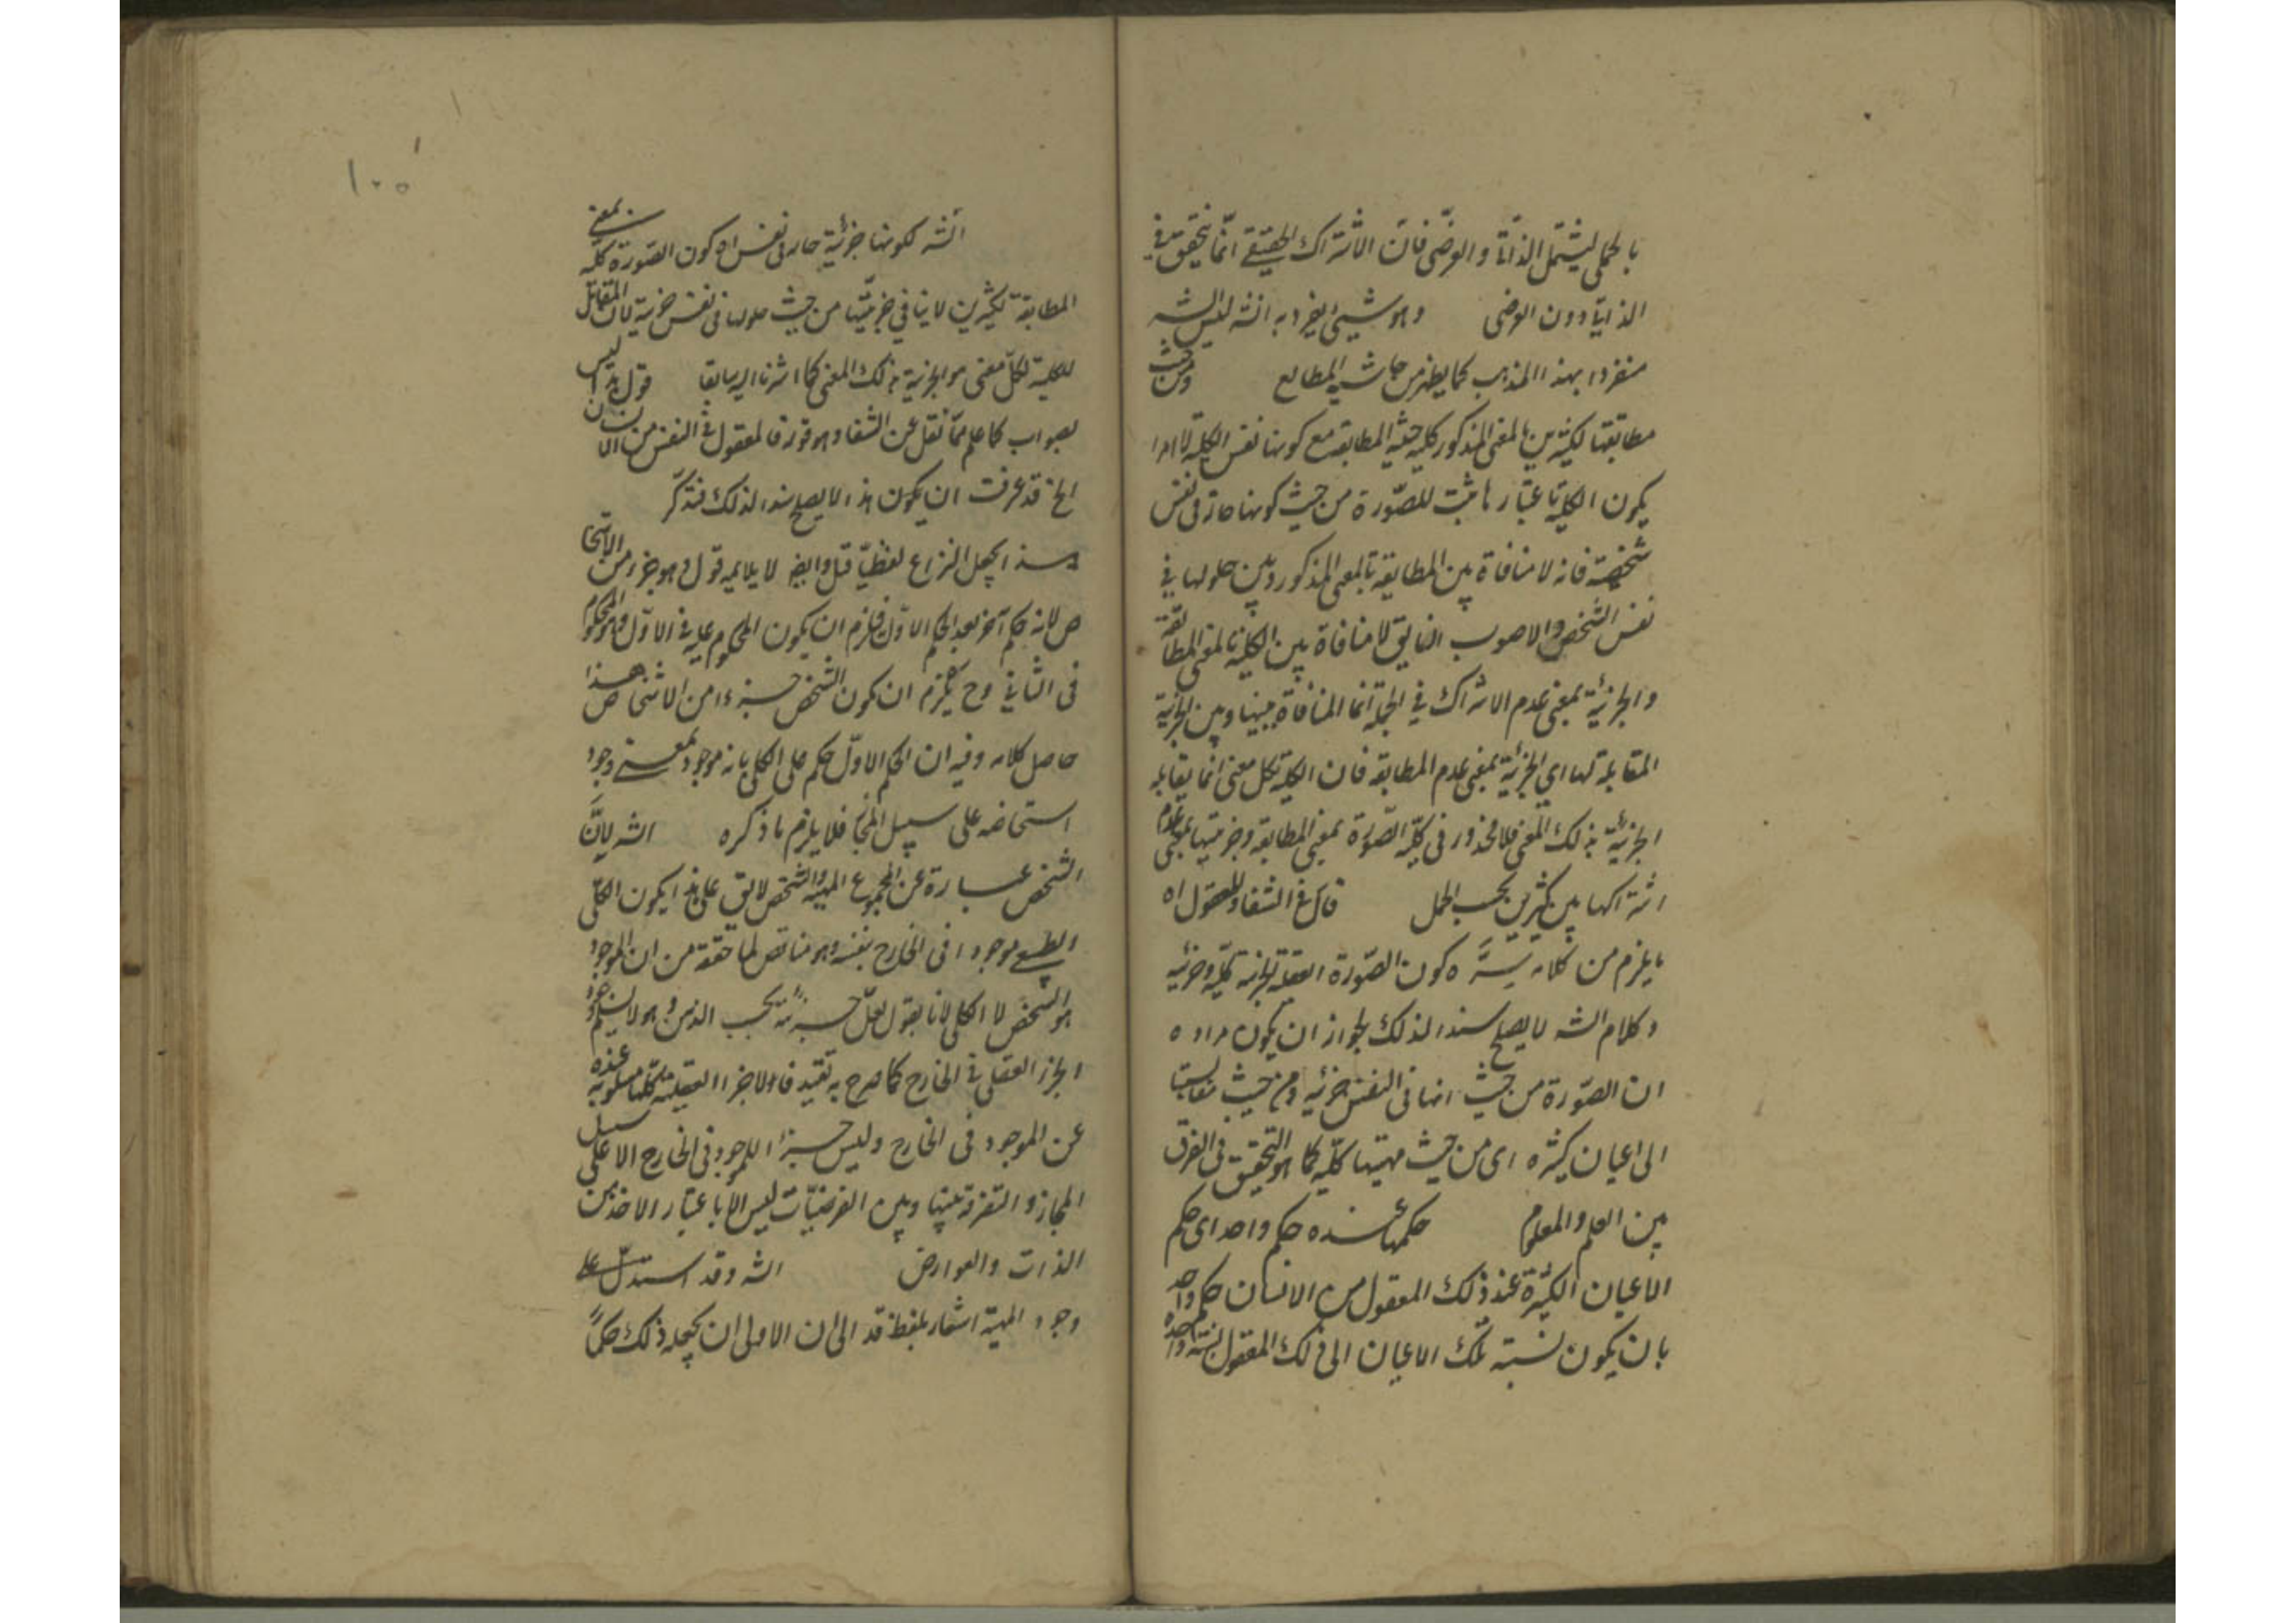 بالحملى ليشتمل الذاتى والعرضى فان الاشتراك الحقيقى انما يتحقق فى
الذاتى دون العرضى وهو شيئ يفرد به الشه ليس الشه
منفردا بهذا المذهب كما يظهر من حاشيه المطالع ومن حيث
مطابقتها لكثيرين بالمعنى المذكور كليه حيثيه المطابقه مع كونها نفس الكليه
يكون الكلية باعتبارها ثبت للصورة من حيث كونها حالة فى نفس
شخصية فانه لا منافاة بين المطابقة بالمعنى المذكور وبين حلولها فى
نفس الشخص والاصوب ان يق لا منافاة بين الكلية بالمعنى المطابقة
والجزئية بمعنى عدم الاشتراك فى الجملة انما المنافاة بينها وبين الجزئية
المقابلة لها اى الجزئية بمعنى عدم المطابقة فان الكلية بكل معنى انما يقابله
الجزئية بذلك المعنى فلا محذور فى كلية الصورة بمعنى المطابقة وجزئيتها بمعنى عدم
اشتراكها بين كثيرين بحسب الحمل قال فى الشفا والمعقول اه
ما يلزم من كلامه كون الصورة العقلية كلية وجزئيه
وكلام الشه لا يصلح سندا لذلك لجواز ان يكون مراده
ان الصورة من حيث انها فى النفس جزئيه ومن حيث
الى اعيان كثيره اى من حيث مهيتها كليه كما هو التحقيق فى الفرق
بين العلم والمعلوم حكمها عنده حكم واحد اى حكم
الاعيان الكثيرة عند ذلك المعقول من الانسان حكم واحد
بان يكون نسبة تلك الاعيان الى ذلك المعقول نسبة واحدة
١٠٥
الشه لكونها جزئية حاله فى نفس اه كون الصورة كليه بمعنى
المطابقة لكثيرين لا ينافى جزئيتها من حيث حلولها فى نفس جزئية لان المقابل
للكلية لكل معنى هو الجزئية بذلك المعنى كما اشرنا اليه سابقا قوله هذا ليس
بصواب كما علم مما نقل عن الشفا وهو قوله فالمعقول فى النفس من الانسان
الخ قد عرفت ان يكون هذا لا يصلح سندا لذلك فتذكر
هذا يجعل النزاع لفظيا قيل وايضا لا يلايمه قوله وهو جزء من الاشخا
ص لانه حكم آخر بعد الحكم الاول فيلزم ان يكون المحكوم عليه فى الاول هو المحكوم
فى الثانى وح يلزم ان يكون الشخص جزءا من الاشخاص هذا
حاصل كلامه وفيه ان الحكم الاول حكم على الكلى بانه موجود بمعنى وجود
اشخاصه على سبيل المجاز فلا يلزم ما ذكره الشه لان
الشخص عبارة عن المجموع المهيه والتشخص لا يق على هذا يكون الكلى
الطبيعى موجودا فى الخارج بنفسه وهو مناقض لما حققه من ان الموجود
هو الشخص لا الكلى لانا نقول لعل جزئيته بحسب الذهن وهو لا يستلزم وجود
الجزء العقلى فى الخارج كما صرح به فان الاجزاء العقلية كلها مسلوبة عنده
عن الموجود فى الخارج وليس جزءا للموجود فى الخارج الا على سبيل
المجاز والتفرقة بينها وبين العرضيات ليس الا باعتبار الاخذ من
الذات والعوارض الشه وقد استدل على
وجود المهية اشعار بلفظ قد الى ان الاولى ان يجعله ذلك حكما